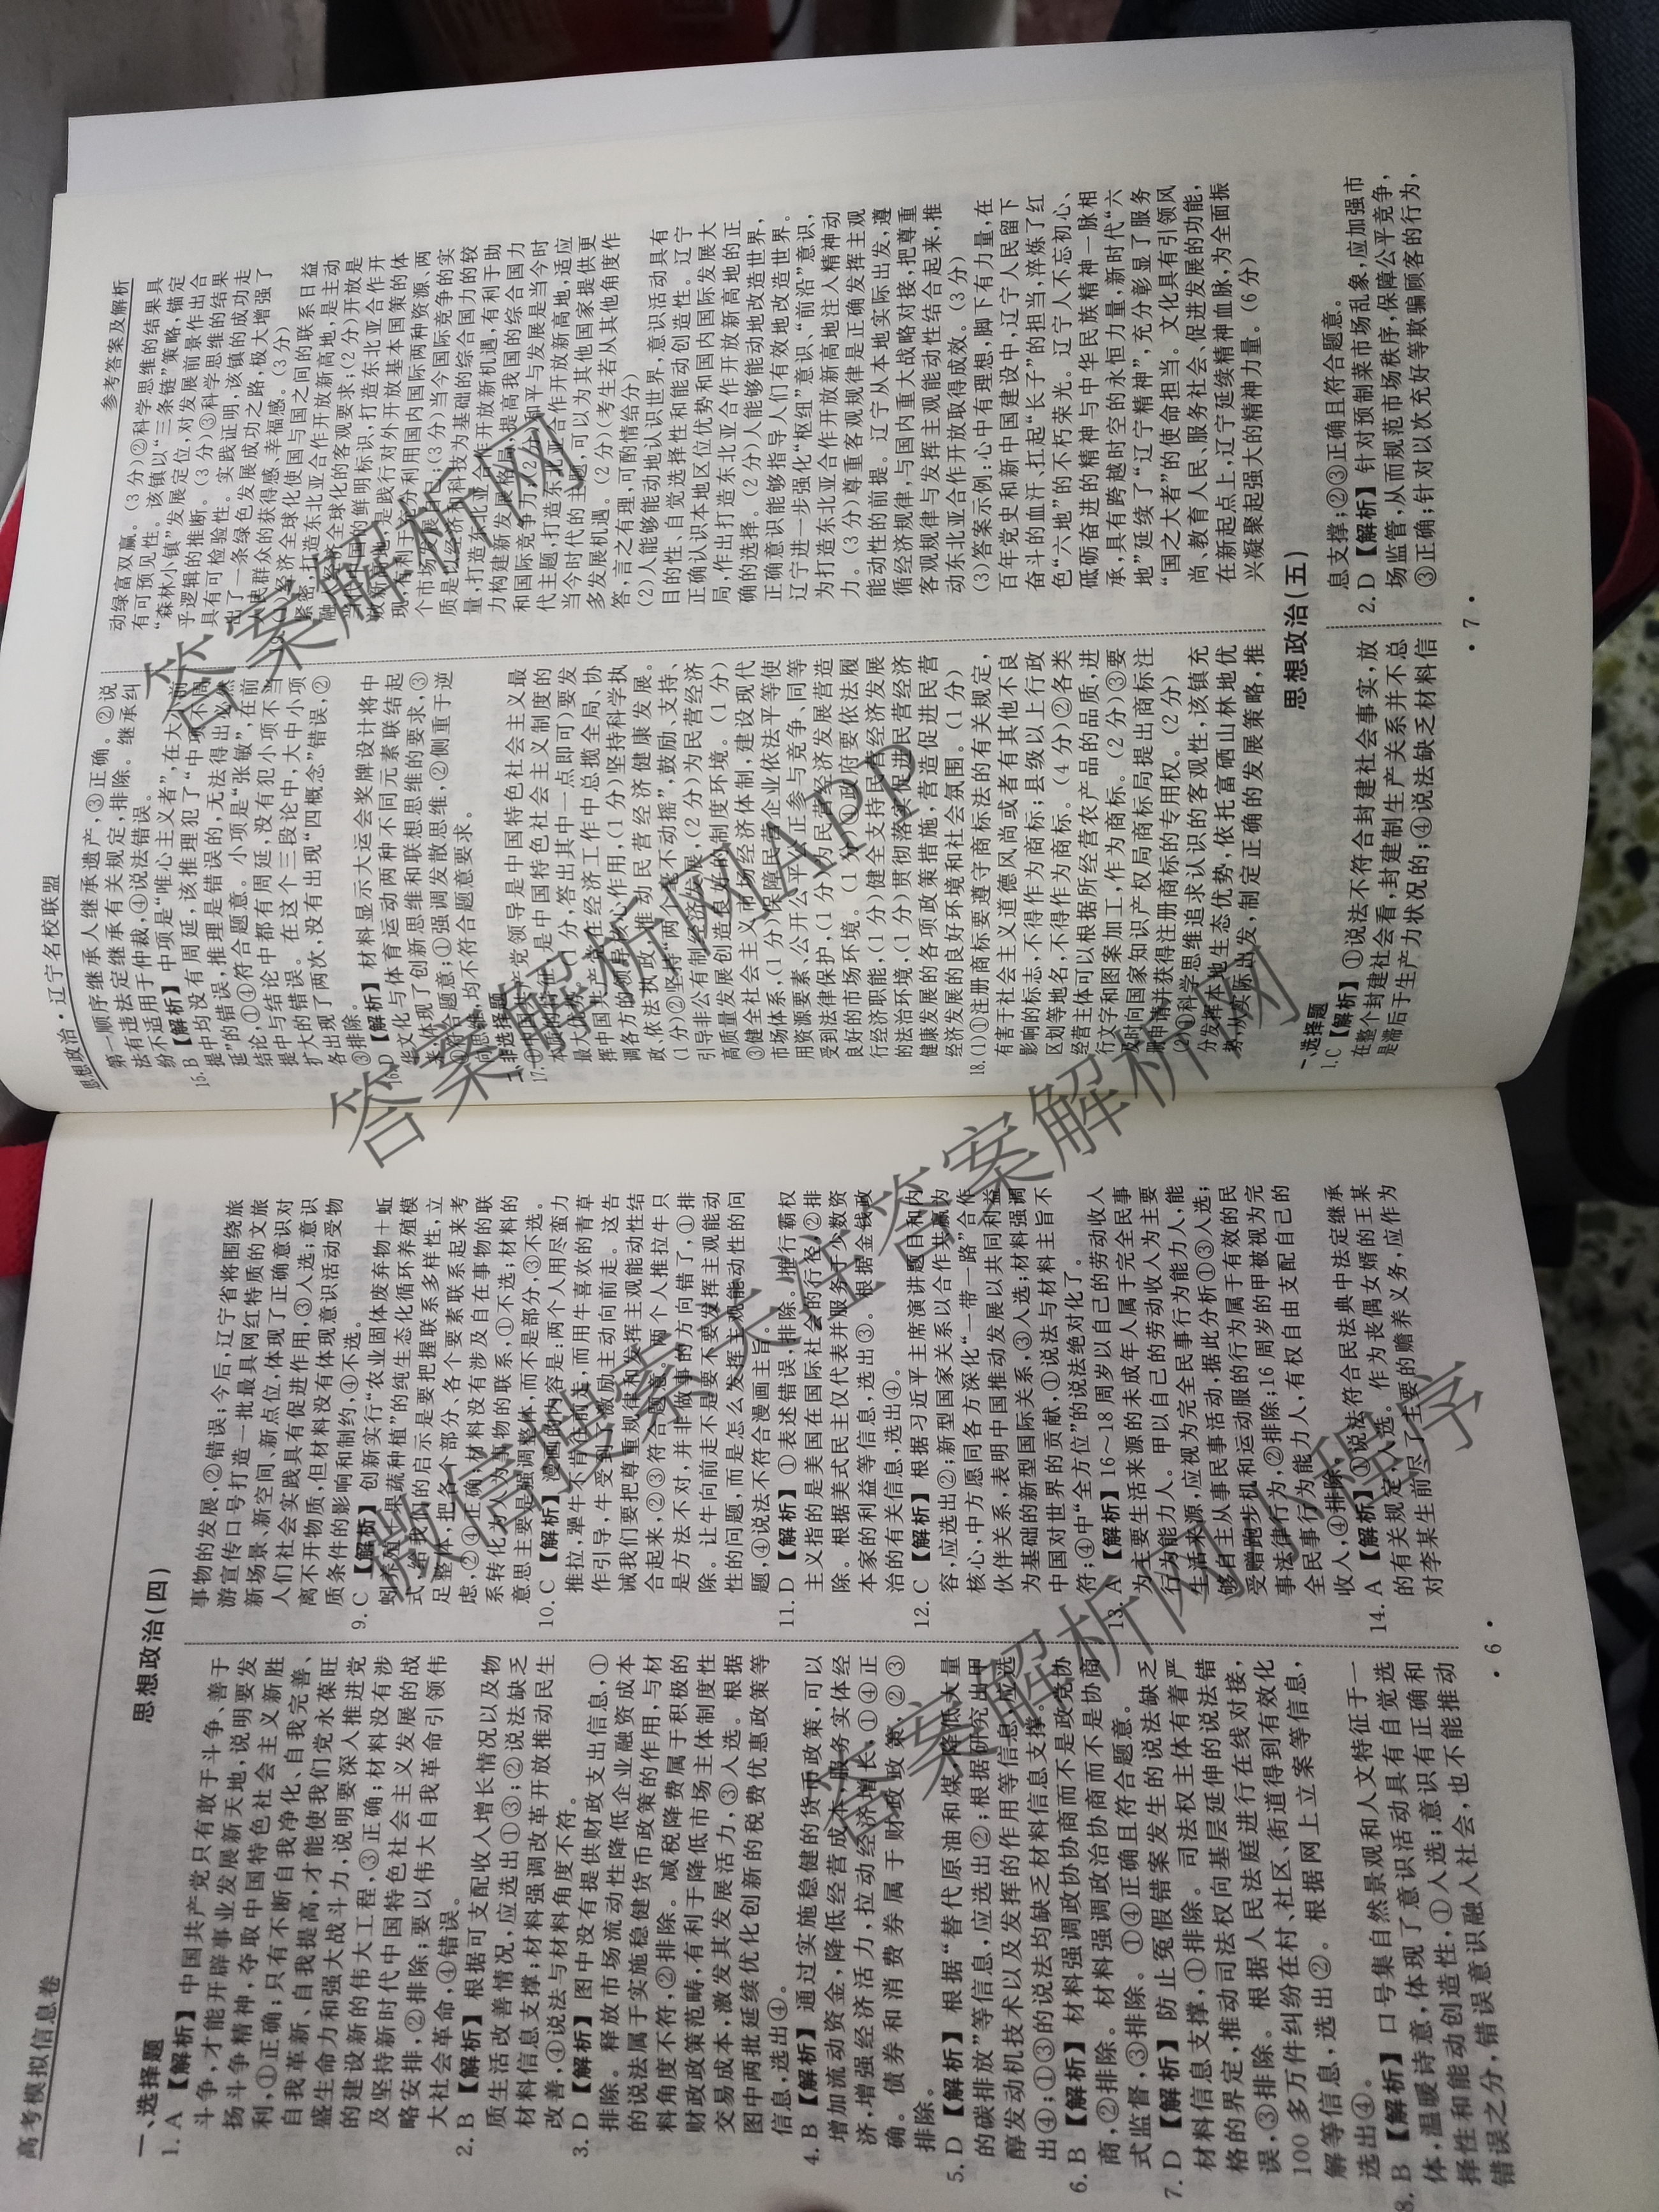 高考模拟信息卷
思想政治(四)
一、选择题
1. A 【解析】中国共产党只有敢于斗争、善于
斗争,才能开辟事业发展新天地,说明要发
扬斗争精神,夺取中国特色社会主义新胜
利,①正确;只有不断自我净化、自我完善、
自我革新、自我提高,才能使我们党永葆旺
盛生命力和强大战斗力,说明要深入推进党
的建设新的伟大工程,③正确;材料没有涉
及坚持新时代中国特色社会主义发展的战
略安排,②排除;要以伟大自我革命引领伟
大社会革命,④错误。
2. B 【解析】根据可支配收入增长情况以及物
质生活改善情况,应选出①③;②说法缺乏
材料信息支撑;材料强调改革开放推动民生
改善,④说法与材料角度不符。
3. D 【解析】图中没有提供财政支出信息,①
排除。释放市场流动性降低企业融资成本
的说法属于实施稳健货币政策的作用,与材
料角度不符,②排除。减税降费属于积极的
财政政策范畴,有利于降低市场主体制度性
交易成本,激发其发展活力,③入选。根据
图中两批延续优化创新的税费优惠政策等
信息,选出④。
4. B 【解析】通过实施稳健的货币政策,可以
增加流动资金,降低经营成本,服务实体经
济,增强经济活力,拉动经济增长,①④正
确。债券和消费券属于财政政策,②③
排除。
5. D 【解析】根据“替代原油和煤,降低大量
的碳排放”等信息,应选出②;根据研究出甲
醇发动机技术以及发挥的作用等信息,应选
出④;①③的说法均缺乏材料信息支撑。
6. B 【解析】材料强调政协协商而不是政党协
商,②排除。材料强调政治协商而不是协商
式监督,③排除。①④正确且符合题意。
7. D 【解析】防止冤假错案发生的说法缺乏
材料信息支撑,①排除。司法权主体有着严
格的界定,推动司法权向基层延伸的说法错
误,③排除。根据人民法庭进行在线对接,
100多万件纠纷在村、社区、街道得到有效化
解等信息,选出②。根据网上立案等信息,
选出④。
8. B 【解析】口号集自然景观和人文特征于一
体,温暖诗意,体现了意识活动具有自觉选
择性和能动创造性,①入选;意识有正确和
错误之分,错误意识融入社会,也不能推动
事物的发展,②错误;今后,辽宁省将围绕旅
游宣传口号打造一批最具网红特质的文旅
新场景、新空间、新点位,体现了正确意识对
人们社会实践具有促进作用,③入选;意识
离不开物质,但材料没有体现意识活动受物
质条件的影响和制约,④不选。
9. C 【解析】创新实行“农业固体废弃物+蚯
蚓养殖+果蔬种植”的纯生态化循环养殖模
式,给我们的启示是要把握联系多样性,立
足整体,把各个部分、各个要素联系起来考
虑,②④正确;材料没有涉及自在事物的联
系转化为人为事物的联系,①不选;材料的
意思主要是强调整体,而不是部分,③不选。
10. C 【解析】漫画的内容是:两个人用尽蛮力
推拉,犟牛不肯向前走,而用牛喜欢的青草
作引导,牛受到激励主动向前走。这告
诫我们要把尊重规律和发挥主观能动性结
合起来,②③符合题意。两个人推拉牛只
是方法不对,并非做事的方向错了,①排
除。让牛向前走不是要不要发挥主观能动
性的问题,而是怎么发挥主观能动性的问
题,④说法不符合漫画主旨。
11. D 【解析】①表述错误,排除。推行霸权
主义指的是美国在国际社会的行径,②排
除。根据美式民主仅代表并服务于少数资
本家的利益等信息,选出③。根据金钱政
治的有关信息,选出④。
12. C 【解析】根据习近平主席演讲题目和内
容,应选出②;新型国家关系以合作共赢为
核心,中方愿同各方深化“一带一路”合作
伙伴关系,表明中国推动发展以共同利益
为基础的新型国际关系,③入选;材料强调
中国对世界的贡献,①说法与材料主旨不
符;④中“全方位”的说法绝对化了。
13. A 【解析】16~18周岁以自己的劳动收入
为主要生活来源的未成年人属于完全民事
行为能力人。甲以自己的劳动收入为主要
生活来源,应视为完全民事行为能力人,能
够自主从事民事活动,据此分析①③入选;
受赠跑步机和运动服的行为属于有效的民
事法律行为,②排除;16周岁的甲被视为完
全民事行为能力人,有权自由支配自己的
收入,④排除。
14. A 【解析】①说法符合民法典中法定继承
的有关规定,入选。作为丧偶女婿的王某
对李某生前尽了主要的赡养义务,应作为
· 6 ·
思想政治·辽宁名校联盟
参考答案及解析
第一顺序继承人继承遗产,③正确。②说
法有违法定继承有关规定,排除。继承纠
纷不适用于仲裁,④说法错误。
15. B 【解析】中项是“唯心主义者”,在大小前
提中均没有周延,该推理犯了“中项不周
延”的错误,推理是错误的,无法得出必然
结论,①④符合题意。小项是“张敏”,在前
提中与结论中都有周延,没有犯小项不当
扩大的错误。在这个三段论中,大中小项
各出现了两次,没有出现“四概念”错误,②
③排除。
16. D 【解析】材料显示大运会奖牌设计将中
华文化与体育运动两种不同元素联结起
来,体现了创新思维和联想思维的要求,③
④符合题意;①强调发散思维,②侧重于逆
向思维,均不符合题意要求。
二、非选择题
17. ①中国共产党领导是中国特色社会主义最
本质的特征,是中国特色社会主义制度的
最大优势,(1分,答出其中一点即可)要发
挥中国共产党在经济工作中总揽全局、协
调各方的领导核心作用,(1分)坚持科学执
政、依法执政,推动民营经济健康发展。
(1分)②坚持“两个毫不动摇”,鼓励、支持、
引导非公有制经济发展,(2分)为民营经济
高质量发展创造良好的制度环境。(1分)
③健全社会主义市场经济体制,建设现代
市场体系,(1分)保障民营企业依法平等使
用资源要素、公开公平公正参与竞争、同等
受到法律保护,(1分)为民营经济发展营造
良好的市场环境。(1分)④政府要依法履
行经济职能,(1分)健全支持民营经济发展
的法治环境,(1分)贯彻落实促进民营经济
健康发展的各项政策措施,营造促进民营
经济发展的良好环境和社会氛围。(1分)
18. (1)①注册商标要遵守商标法的有关规定,
有害于社会主义道德风尚或者有其他不良
影响的标志,不得作为商标;县级以上行政
区划等地名,不得作为商标。(4分)②各类
经营主体可以根据所经营农产品的品质,进
行文字和图案加工,作为商标。(2分)③要
及时向国家知识产权局商标局提出商标注
册申请并获得注册商标的专用权。(2分)
(2)①科学思维追求认识的客观性,该镇充
分发挥本地生态优势,依托富硒山林地优
势,从实际出发,制定正确的发展策略,推
动绿富双赢。(3分)②科学思维的结果具
有可预见性。该镇以“三条链”策略,锚定
“森林小镇”发展定位,对发展前景作出合
乎逻辑的推断。(3分)③科学思维的结果
具有可检验性。实践证明,该镇的成功走
出了一条绿色发展成功之路,极大增强了
人民群众的获得感、幸福感。(3分)
19. (1)经济全球化使国与国之间的联系日益
紧密,打造东北亚合作开放新高地,是主动
融入经济全球化的客观要求;(2分)开放是
当代中国的鲜明标识,打造东北亚合作开
放新高地,是践行对外开放基本国策的体
现,有利于充分利用国内国际两种资源、两
个市场发展自己;(3分)当今国际竞争的实
质是以经济和科技为基础的综合国力的较
量,打造东北亚合作开放新机遇,有利于助
力构建新发展格局,提高我国的综合国力
和国际竞争力;(2分)和平与发展是当今时
代主题,打造东北亚合作开放新高地,适应
当今时代的主题,可以为其他国家提供更
多发展机遇。(2分)(考生若从其他角度作
答,言之有理,可酌情给分)
(2)人能够能动地认识世界,意识活动具有
目的性、自觉选择性和能动创造性。辽宁
正确认识本地区位优势和国内国际发展大
局,作出打造东北亚合作开放新高地的正
确的选择。(2分)人能够能动地改造世界,
正确意识能够指导人们有效地改造世界。
辽宁进一步强化“枢纽”意识、“前沿”意识,
为打造东北亚合作开放新高地注入精神动
力。(3分)尊重客观规律是正确发挥主观
能动性的前提。辽宁从本地实际出发,遵
循经济规律,与国内重大战略对接,把尊重
客观规律与发挥主观能动性结合起来,推
动东北亚合作开放取得成效。(3分)
(3)答案示例:心中有理想,脚下有力量,在
百年党史和新中国建设中,辽宁人民留下
奋斗的血汗、扛起“长子”的担当,淬炼了红
色“六地”的不朽荣光。辽宁人不忘初心、
砥砺奋进的精神与中华民族精神一脉相
承,具有跨越时空的永恒力量,新时代“六
地”延续了“辽宁精神”,充分彰显了服务
“国之大者”的使命担当。文化具有引领风
尚、教育人民、服务社会、促进发展的功能,
在新起点上,辽宁延续精神血脉,为全面振
兴凝聚起强大的精神力量。(6分)
思想政治(五)
一、选择题
1. C 【解析】①说法不符合封建社会事实,放
在整个封建社会看,封建制生产关系并不总
是滞后于生产力状况的;④说法缺乏材料信
息支撑;②③正确且符合题意。
2. D 【解析】针对预制菜市场乱象,应加强市
场监管,从而规范市场秩序,保障公平竞争,
③正确;针对以次充好等欺骗顾客的行为,
· 7 ·
答案解析网
答案解析网APP
微信搜索关注答案解析网
答案解析网小程序